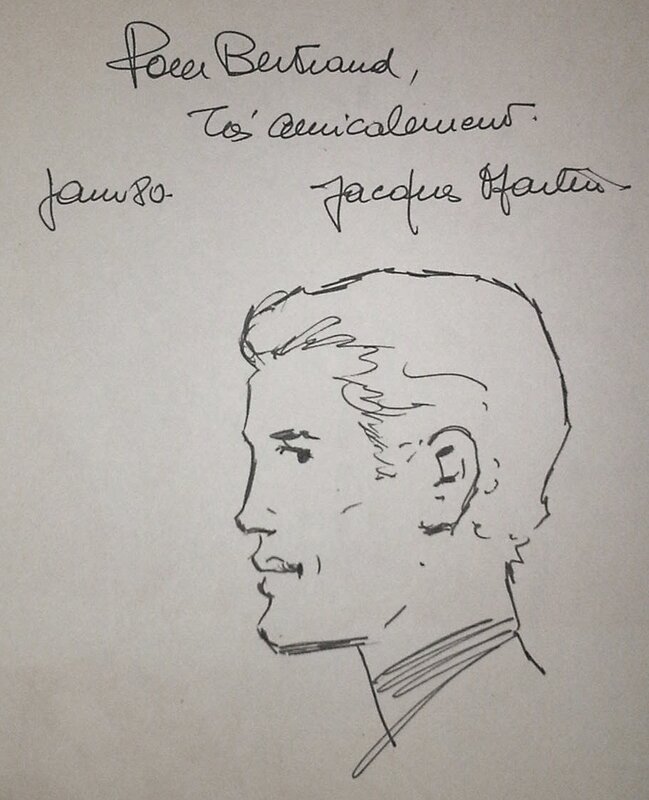 Pour Bertrand,
Très amicalement.
Janv 80. Jacques Martin